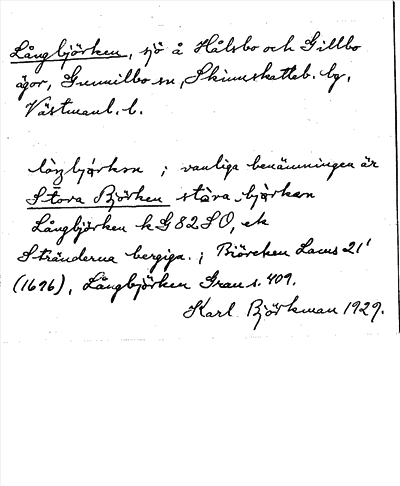 Långbjörken, sjö å Hålsbo och Gillbo
ägor, Gunnilbo sn, Skinnskatteb. hg,
Västmanl. l.
låŋbjǫrkən ; vanliga benämningen är
Stora Björken stora bjǫrkən
Långbjörken kG 82 SO, ek
Stränderna bergiga. ; Biörcken Lacus 21'
(1696), Långbjörken Grau s. 409.
Karl Björkman 1929.